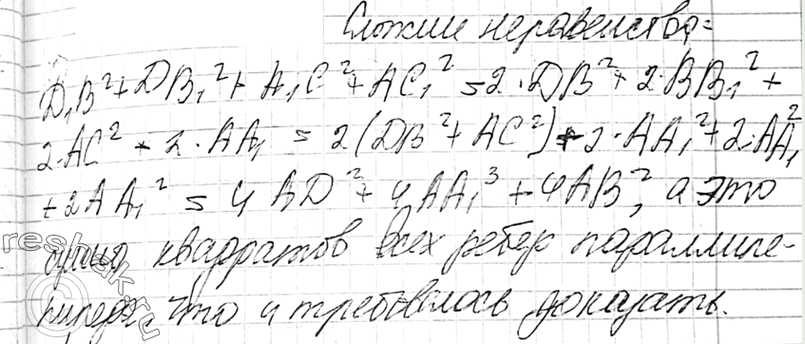 Сложим неравенства:
D₁B²+DB₁²+A₁C²+AC₁² = 2·DB²+2·BB₁²+
2·AC²+2·AA₁ = 2(DB²+AC²)+2·AA₁²+2·AA₁²
+2AA₁² = 4AD²+4AA₁³+4AB², а это
сумма квадратов всех ребер параллипе-
педа, что и требовалось доказать.
reshak.ru